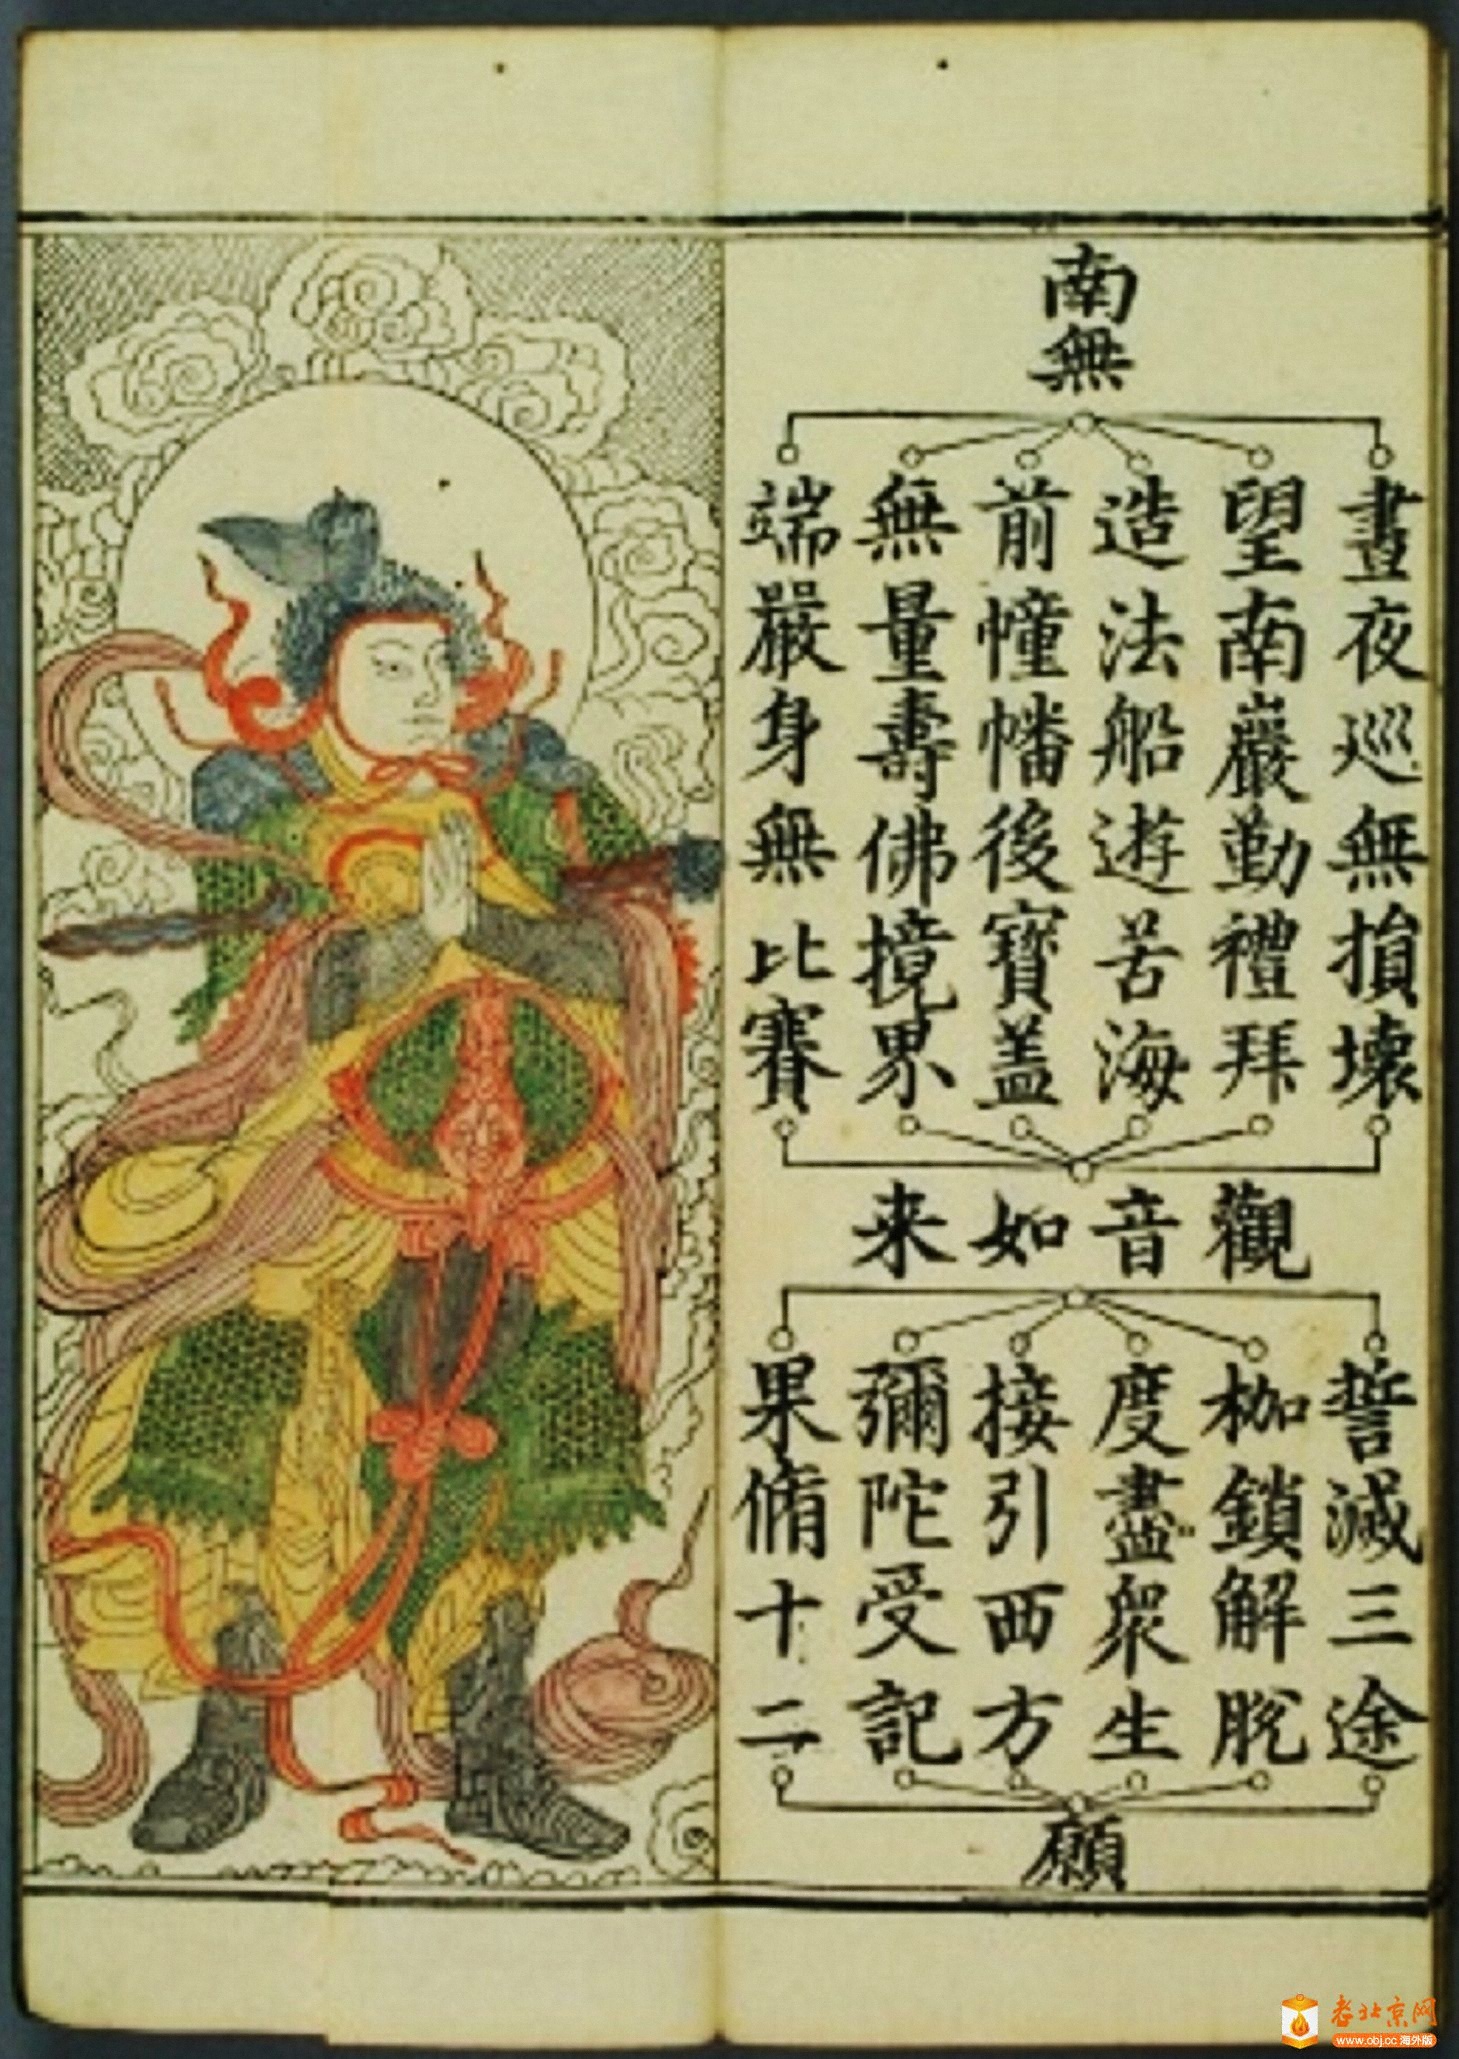 南無
晝夜巡無損壞
望南巖勤禮拜
造法船遊苦海
前幢幡後寶盖
無量壽佛境界
端嚴身無比賽
觀音如来
誓滅三途
枷鎖解脫
度盡眾生
接引西方
彌陀受記
果脩十二
願
老北京网
www.obj.cc 海外版